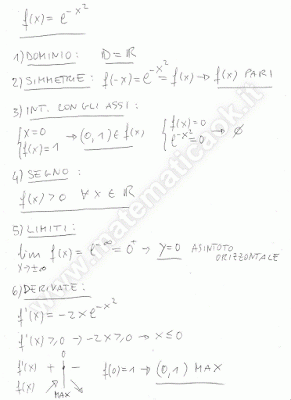 f(x) = e^{-x²}
1) DOMINIO: D = ℝ
2) SIMMETRIE: f(-x) = e^{-x²} = f(x) → f(x) PARI
3) INT. CON GLI ASSI:
{x=0 f(x)=1 → (0,1) ∈ f(x) {f(x)=0 e^{-x²}=0 → ∅
4) SEGNO:
f(x) > 0 ∀ x ∈ ℝ
5) LIMITI:
lim x→±∞ f(x) = e^{-∞} = 0⁺ → y=0 ASINTOTO ORIZZONTALE
6) DERIVATE:
f'(x) = -2x e^{-x²}
f'(x) ≥ 0 → -2x ≥ 0 → x ≤ 0
0
f'(x) + -
f(x) ↗ ↘ f(0)=1 → (0,1) MAX
MAX
www.matematicaok.it